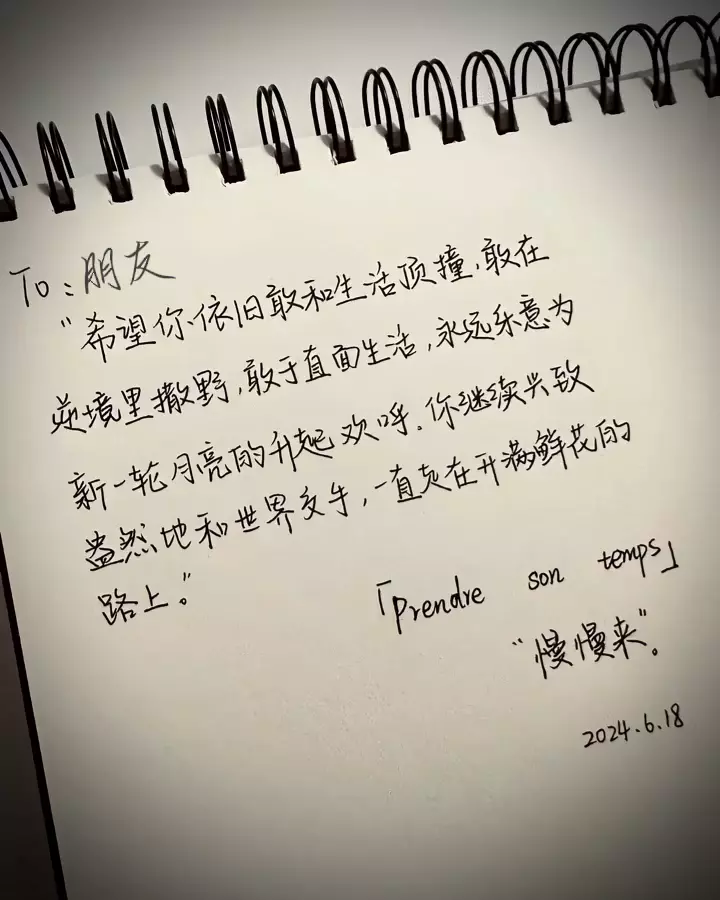 To：朋友
“希望你依旧敢和生活顶撞，敢在
逆境里撒野，敢于直面生活，永远乐意为
新一轮月亮的升起欢呼。你继续兴致
盎然地和世界交手，一直走在开满鲜花的
路上。”
「prendre son temps」
“慢慢来”。
2024.6.18